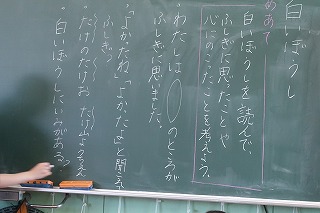 白いぼうし
めあて
白いぼうしを読んで、
ふしぎに思ったことや
心にのこったことを考えよう。
わたしは〇のところが
ふしぎに思いました。
「よかったね」「よかったよ」と聞こえ
ふしぎ。
たけのたけお たけ山ようちえ
白いぼうしにいみがある。